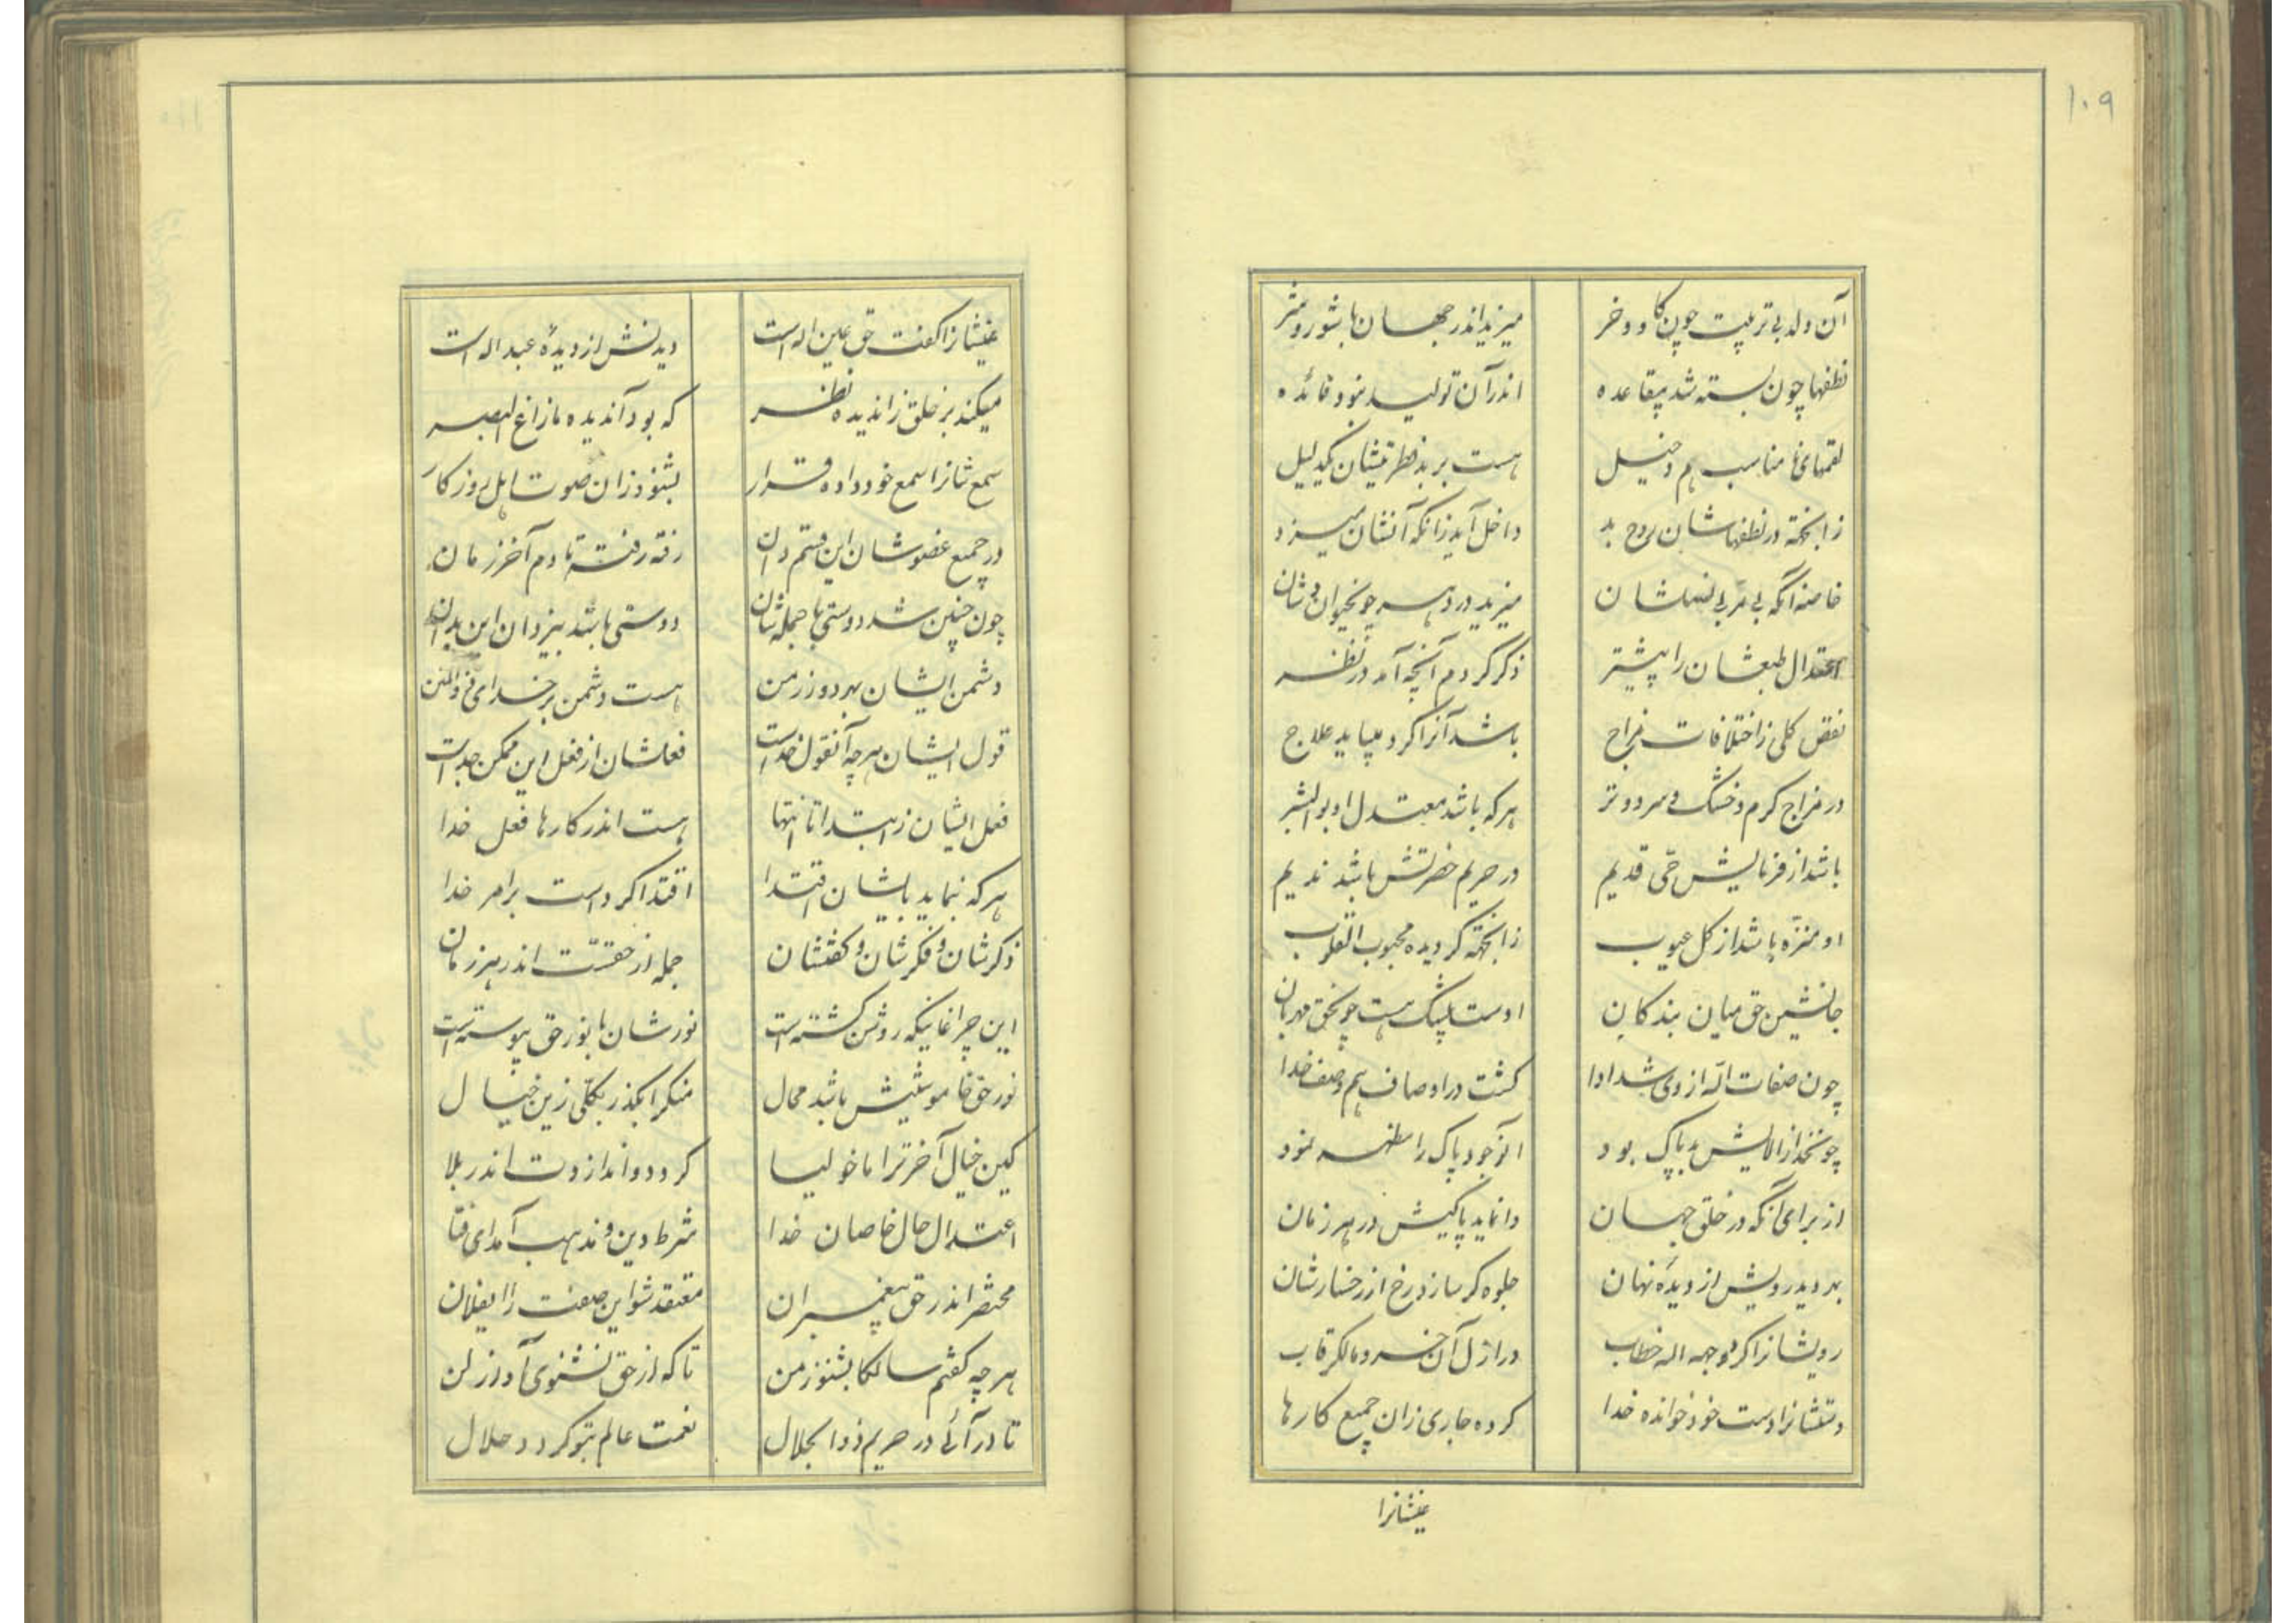 ۱۰۹
آن ولد بی تربیت چون کاو و خر میزید اندر جهان با شور و شر
نطفها چون بسته شد بیقاعده اندر آن تولید نبود فائده
لقمهای نا مناسب هم دخیل هست بر بد فطرتیشان یکدلیل
زانجهته در نطفهاشان روح بد داخل آید زانکه آنشان میسزد
خاصه آنگه بی مربی نسلشان میزید در دهر چونحیوان وشان
اعتدال طبعشان را پیشتر ذکر کردم آنچه آمد در نظر
نقص کلی ز اختلافات مزاج باشد آنرا کرد میباید علاج
در مزاج کرم و خشک و سرد و تر هر که باشد معتدل او بو البشر
باشد از فرمایش حی قدیم در حریم حضرتش باشد ندیم
او منزه باشد از کل عیوب زانجهته کردیده محبوب القلوب
جانشین حق میان بندکان اوست بیشک هست چونحق مهربان
چون صفات اله از وی شد ادا کشت در اوصاف هم وصف خدا
چونخدا ز الایش پاک بود انوجود پاک را مظهر نمود
از برای آنکه در خلق جهان وانماید پاکیش در هر زمان
بد دیدرویش از دیده نهان جلوه کر سازد رخ از رخسارشان
رویشانرا کرد وجه اله خطاب در ازل آن خسرو مالکرقاب
دستشانرا دست خود خوانده خدا کرده جاری زان جمیع کارها
عینشانرا
عینشانرا کفت حق عین اله است دیدنش از دیدهٔ عبد اله است
میکند بر خلق زاندیده نظر که بود آندیده ما زاغ البصر
سمع شانرا سمع خود داده قرار بشنود زان صوت اهل روزکار
در جمیع عضوشان این قسم دان رفته رفته تا دم آخر زمان
چون چنین شد دوستی با جمله شان دوستی باشد بیزدان این بدان
دشمن ایشان بهر دور زمن هست دشمن بر خدای ذو المنن
قول ایشان هر چه آنقول خداست فعلشان از فعل این ممکن جداست
فعل ایشان ز ابتدا تا انتها هست اندر کارها فعل خدا
هر که بنماید بایشان اقتدا اقتدا کرداست بر امر خدا
ذکرشان و فکرشان و کفتشان جمله از حقست اندر هر زمان
این چراغانیکه روشن کشته است نورشان با نور حق پیوسته است
نور حق خاموشیش باشد محال منکرا بکذر بکلی زین خیال
کین خیال آخر ترا ماخولیا کردد و اندازدت اندر بلا
اعتدال حال خاصان خدا شرط دین و مذهب آمد ای فتا
مختصر اندر حق پیغمبران معتقد شو این صفت را ایفلان
هر چه کفتم سالکا بشنو ز من تا که از حق نشنوی آواز لن
تا در آئی در حریم ذو الجلال نعمت عالم بتو کردد حلال